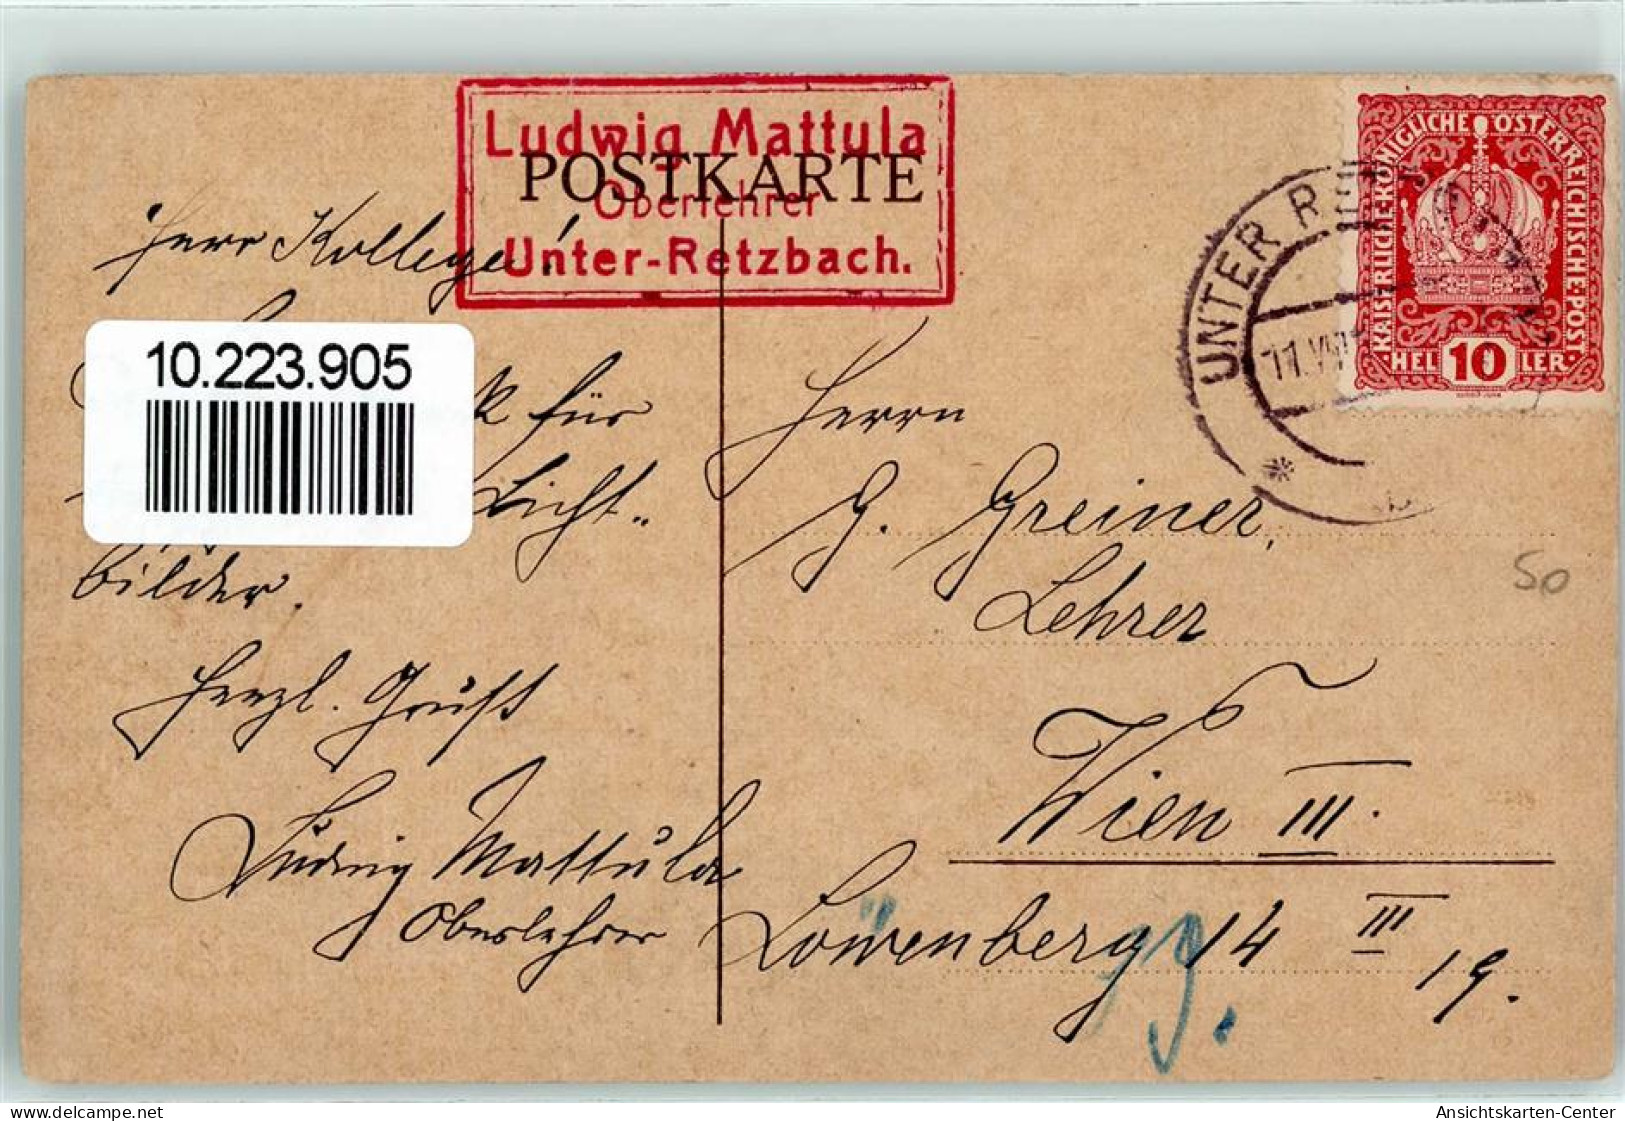 Ludwig Mattula
POSTKARTE
Oberlehrer
Unter-Retzbach.
KAISERLICHE·KÖNIGLICHE ÖSTERREICHISCHE·POST
HEL 10 LER
UNTER RETZ
11.VII
Herr Kollege!
10.223.905
k für
Licht-
bilder.
Herzl. Gruß
Ludwig Mattula
Oberlehrer
Herrn
G. Greiner,
Lehrer
Wien III.
Löwenberg 14 III
19.
19.
50
delcampe.net
Ansichtskarten-Center